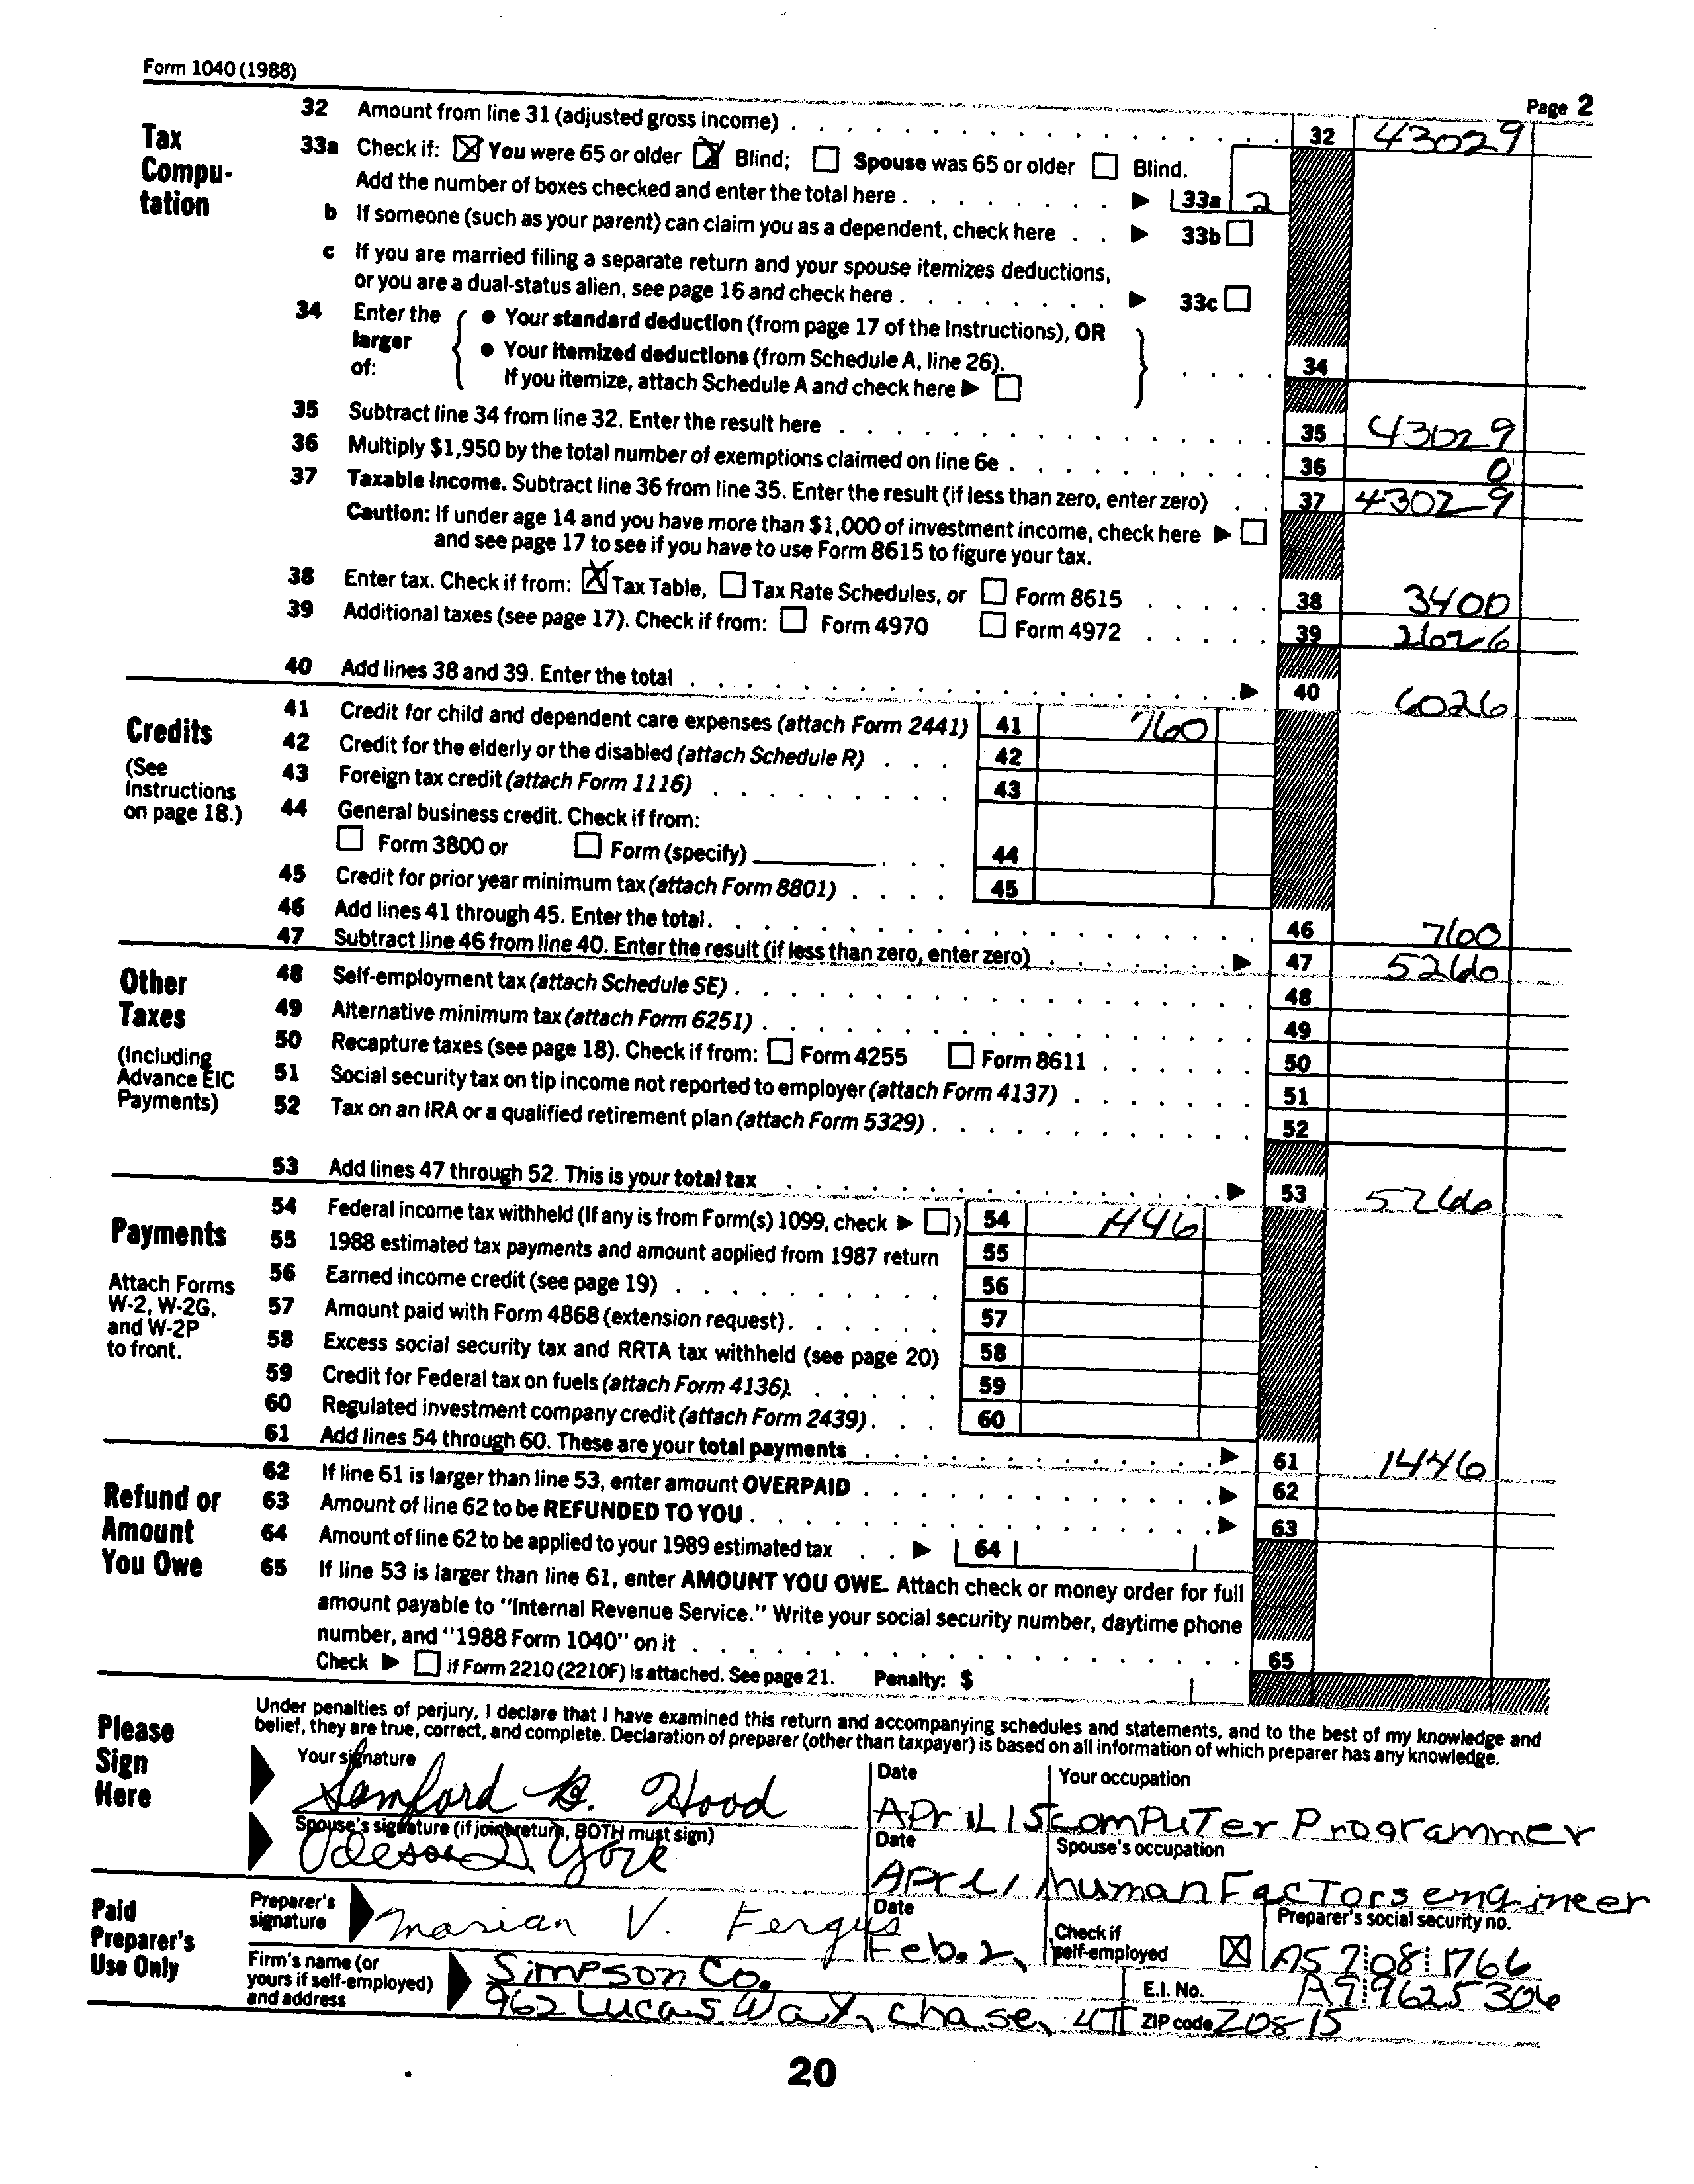 Form 1040 (1988)
Page 2
Tax Compu-tation
32 Amount from line 31 (adjusted gross income) 32 43029
33a Check if: ☒ You were 65 or older ☒ Blind; ☐ Spouse was 65 or older ☐ Blind.
Add the number of boxes checked and enter the total here ▶ 33a 2
b If someone (such as your parent) can claim you as a dependent, check here ▶ 33b ☐
c If you are married filing a separate return and your spouse itemizes deductions,
or you are a dual-status alien, see page 16 and check here ▶ 33c ☐
34 Enter the larger of: { ● Your standard deduction (from page 17 of the Instructions), OR
● Your itemized deductions (from Schedule A, line 26).
If you itemize, attach Schedule A and check here ▶ ☐ } 34
35 Subtract line 34 from line 32. Enter the result here 35 43029
36 Multiply $1,950 by the total number of exemptions claimed on line 6e 36 0
37 Taxable income. Subtract line 36 from line 35. Enter the result (if less than zero, enter zero) 37 43029
Caution: If under age 14 and you have more than $1,000 of investment income, check here ▶ ☐
and see page 17 to see if you have to use Form 8615 to figure your tax.
38 Enter tax. Check if from: ☒ Tax Table, ☐ Tax Rate Schedules, or ☐ Form 8615 38 3400
39 Additional taxes (see page 17). Check if from: ☐ Form 4970 ☐ Form 4972 39 2626
40 Add lines 38 and 39. Enter the total ▶ 40 6026
Credits
(See Instructions on page 18.)
41 Credit for child and dependent care expenses (attach Form 2441) 41 760
42 Credit for the elderly or the disabled (attach Schedule R) 42
43 Foreign tax credit (attach Form 1116) 43
44 General business credit. Check if from:
☐ Form 3800 or ☐ Form (specify) 44
45 Credit for prior year minimum tax (attach Form 8801) 45
46 Add lines 41 through 45. Enter the total. 46 760
47 Subtract line 46 from line 40. Enter the result (if less than zero, enter zero) ▶ 47 5266
Other Taxes
(Including Advance EIC Payments)
48 Self-employment tax (attach Schedule SE) 48
49 Alternative minimum tax (attach Form 6251) 49
50 Recapture taxes (see page 18). Check if from: ☐ Form 4255 ☐ Form 8611 50
51 Social security tax on tip income not reported to employer (attach Form 4137) 51
52 Tax on an IRA or a qualified retirement plan (attach Form 5329) 52
53 Add lines 47 through 52. This is your total tax ▶ 53 5266
Payments
Attach Forms W-2, W-2G, and W-2P to front.
54 Federal income tax withheld (If any is from Form(s) 1099, check ▶ ☐) 54 1446
55 1988 estimated tax payments and amount applied from 1987 return 55
56 Earned income credit (see page 19) 56
57 Amount paid with Form 4868 (extension request) 57
58 Excess social security tax and RRTA tax withheld (see page 20) 58
59 Credit for Federal tax on fuels (attach Form 4136) 59
60 Regulated investment company credit (attach Form 2439) 60
61 Add lines 54 through 60. These are your total payments ▶ 61 1446
Refund or Amount You Owe
62 If line 61 is larger than line 53, enter amount OVERPAID ▶ 62
63 Amount of line 62 to be REFUNDED TO YOU ▶ 63
64 Amount of line 62 to be applied to your 1989 estimated tax ▶ 64
65 If line 53 is larger than line 61, enter AMOUNT YOU OWE. Attach check or money order for full
amount payable to "Internal Revenue Service." Write your social security number, daytime phone
number, and "1988 Form 1040" on it 65
Check ▶ ☐ if Form 2210 (2210F) is attached. See page 21. Penalty: $
Please Sign Here
Under penalties of perjury, I declare that I have examined this return and accompanying schedules and statements, and to the best of my knowledge and
belief, they are true, correct, and complete. Declaration of preparer (other than taxpayer) is based on all information of which preparer has any knowledge.
Your signature Date Your occupation
Samford B. Hood APRIL 15 computer Programmer
Spouse's signature (if joint return, BOTH must sign) Date Spouse's occupation
Odessa D. York human Factors engineer
Paid Preparer's Use Only
Preparer's signature Marian V. Fergus
Date Feb. 2,
Check if self-employed ☒
Preparer's social security no. A57:08:1766
Firm's name (or yours if self-employed) and address
Simpson Co.
E.I. No. A9:9625306
962 Lucas Way, Chase,
ZIP code 20815
20